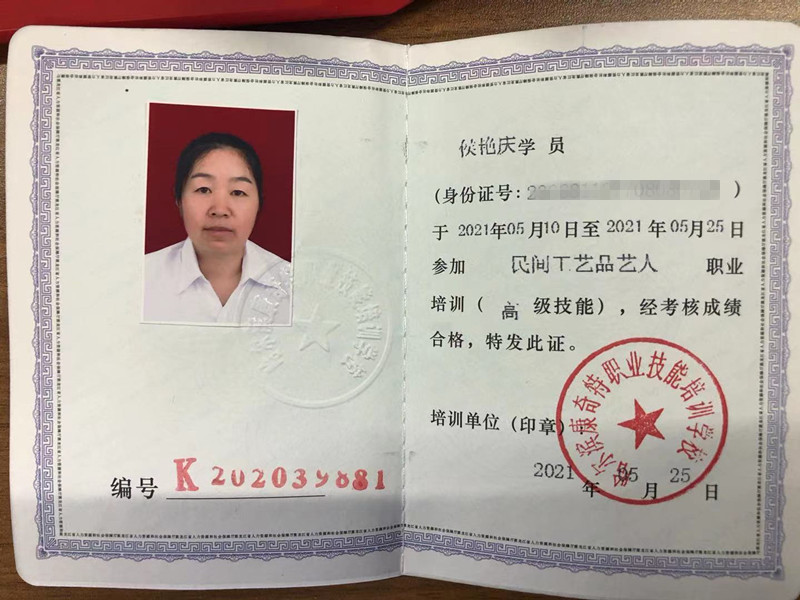 侯艳庆学 员
(身份证号: )
于 2021年05月10日至 2021年05月25日
参加 民间工艺品艺人 职业
培训( 高 级技能),经考核成绩
合格,特发此证。
培训单位(印章)
哈尔滨康奇特职业技能培训学校
2021年 05月 25日
编号 K 202039881